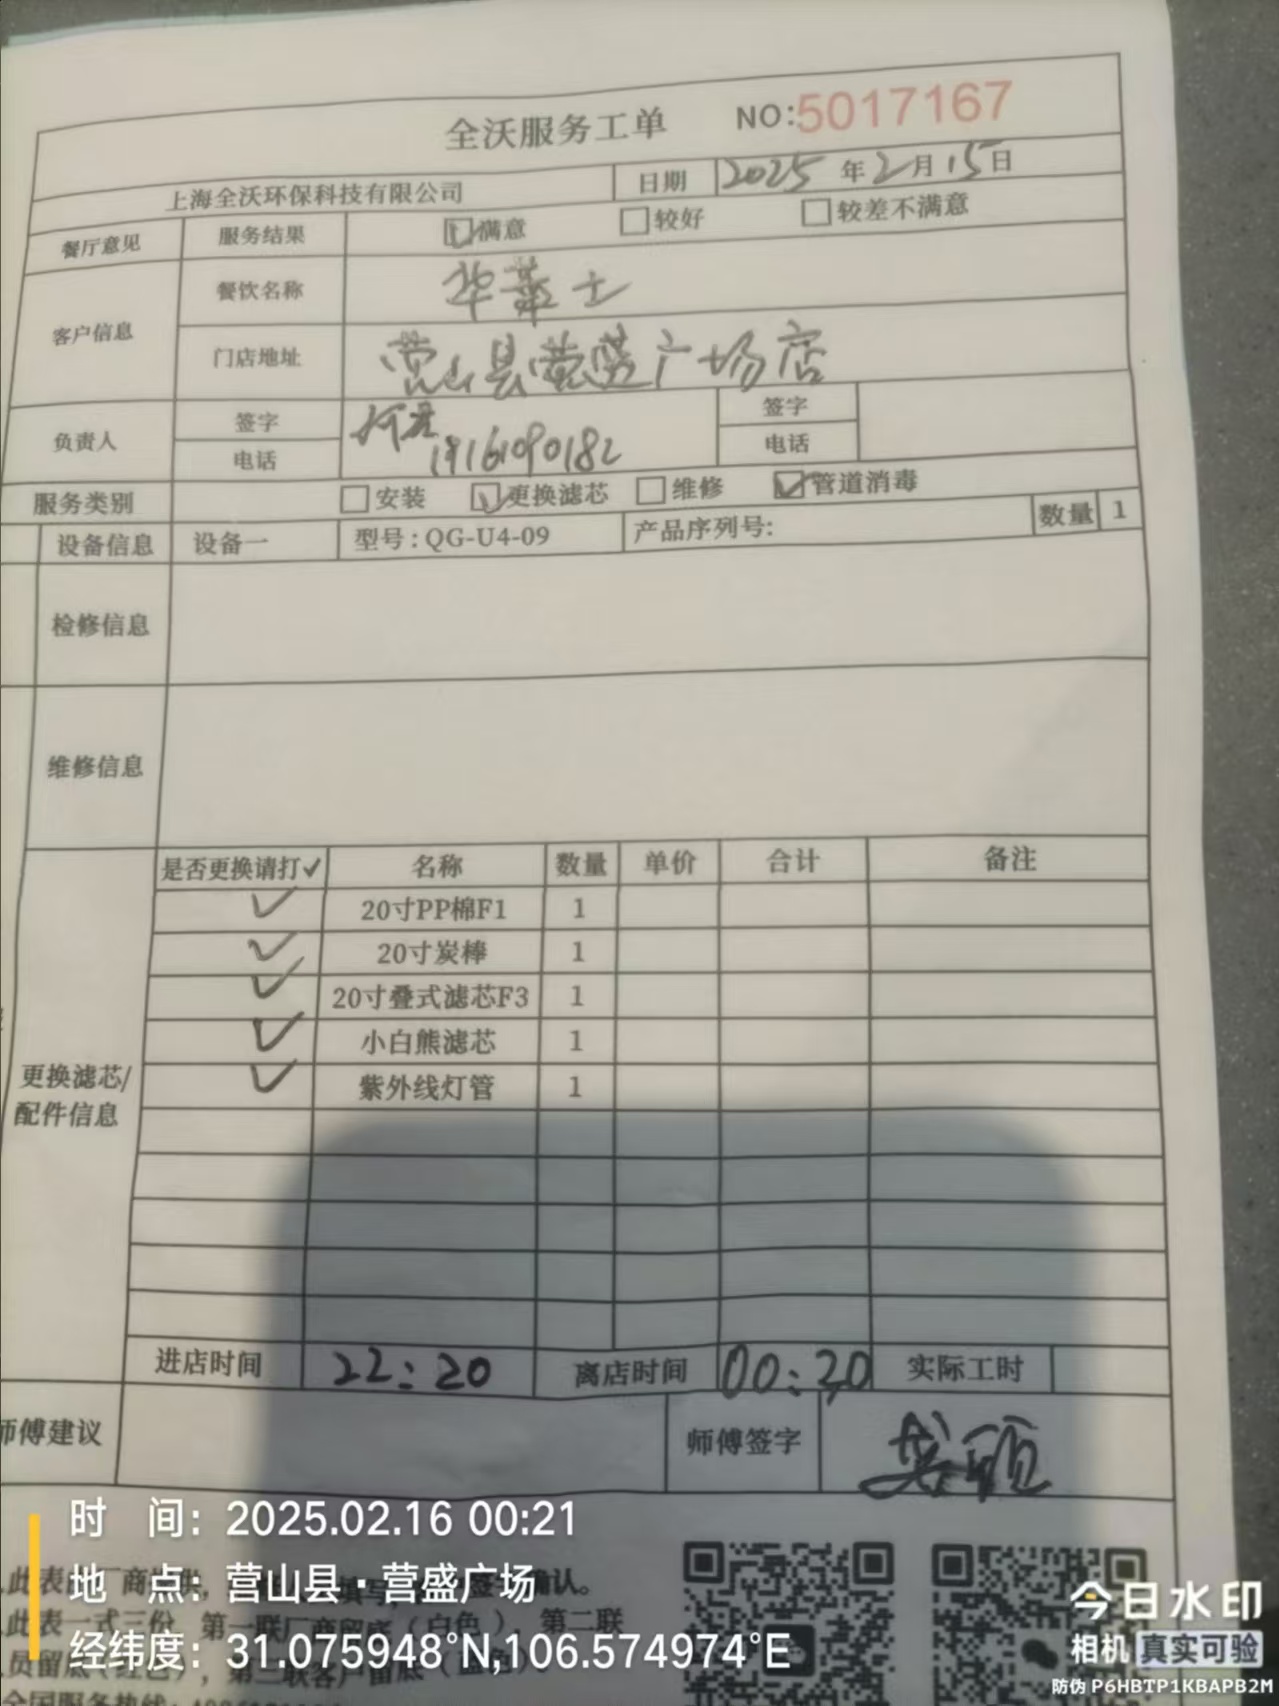 全沃服务工单 NO:5017167
上海全沃环保科技有限公司 日期 2025年2月15日
餐厅意见 服务结果 满意 较好 较差不满意
客户信息 餐饮名称 华莱士
门店地址 营山县营盛广场店
负责人 签字 签字
电话 19161090182 电话
服务类别 安装 更换滤芯 维修 管道消毒
设备信息 设备一 型号:QG-U4-09 产品序列号: 数量 1
检修信息
维修信息
更换滤芯/配件信息
是否更换请打✓ 名称 数量 单价 合计 备注
✓ 20寸PP棉F1 1
✓ 20寸炭棒 1
✓ 20寸叠式滤芯F3 1
✓ 小白熊滤芯 1
✓ 紫外线灯管 1
进店时间 22:20 离店时间 00:20 实际工时
师傅建议 师傅签字
时 间: 2025.02.16 00:21
地 点: 营山县·营盛广场
经纬度: 31.075948°N,106.574974°E
今日水印
相机 真实可验
防伪 P6HBTP1KBAPB2M